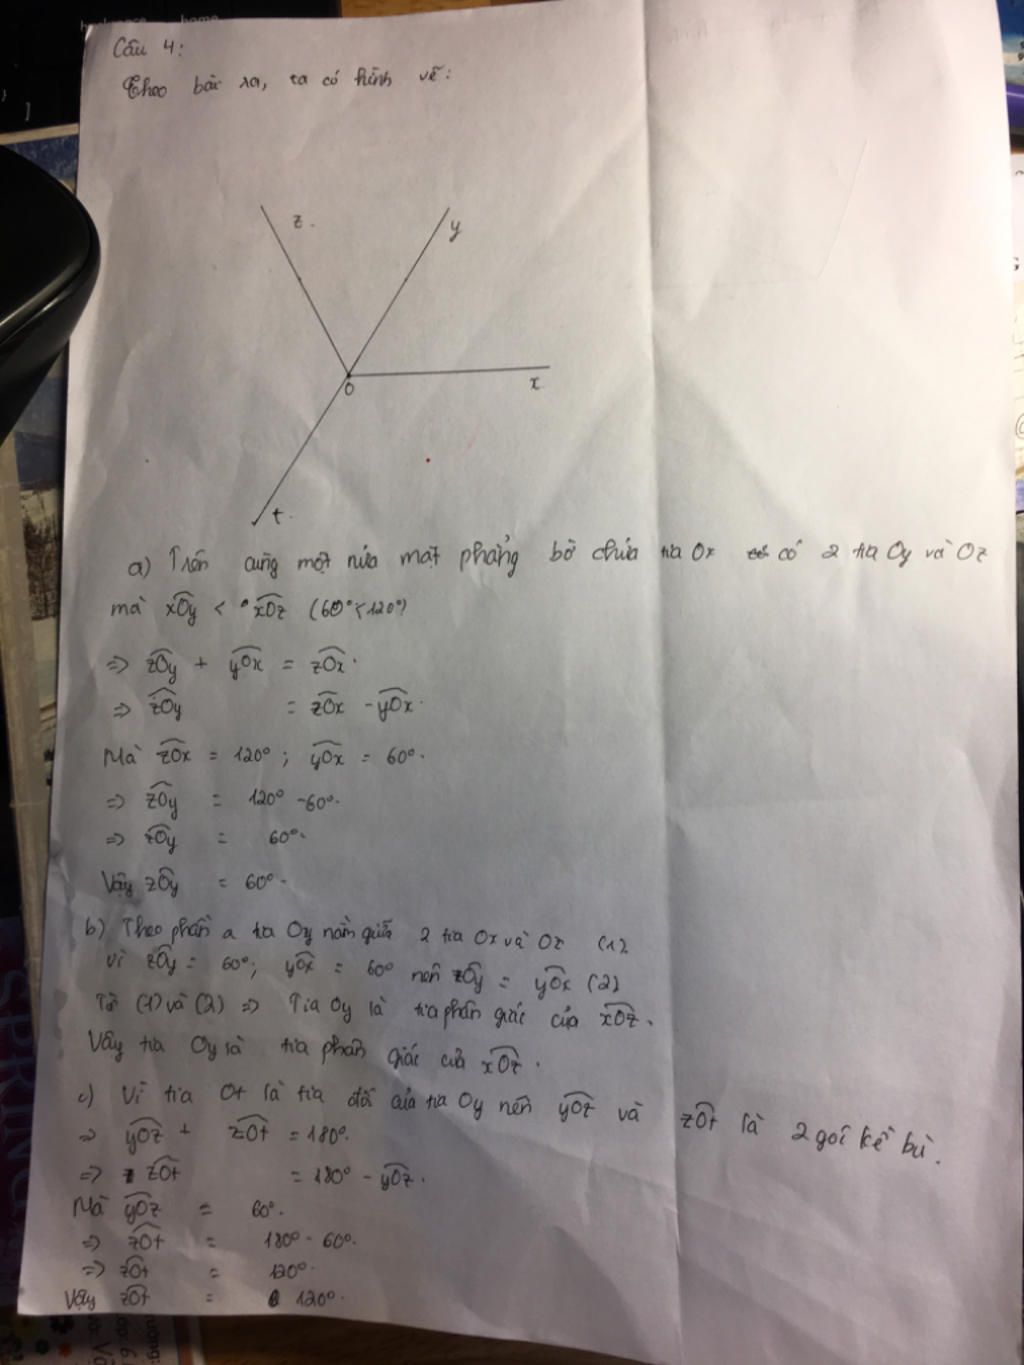 home
Câu 4:
Theo bài ra, ta có hình vẽ:
z
y
O
x
t
a) Trên cùng một nửa mặt phẳng bờ chứa tia Ox có 2 tia Oy và Oz
mà xOy < xOz (60° < 120°)
=> zOy + yOx = zOx.
=> zOy = zOx - yOx.
Mà zOx = 120°; yOx = 60°.
=> zOy = 120° - 60°.
=> zOy = 60°.
Vậy zOy = 60°.
b) Theo phần a tia Oy nằm giữa 2 tia Ox và Oz (1).
Vì zOy = 60°; yOx = 60° nên zOy = yOx (2)
Từ (1) và (2) => Tia Oy là tia phân giác của xOz.
Vậy tia Oy là tia phân giác của xOz.
c) Vì tia Ot là tia đối của tia Oy nên yOz và zOt là 2 goí kề bù.
=> yOz + zOt = 180°.
=> zOt = 180° - yOz.
Mà yOz = 60°.
=> zOt = 180° - 60°.
=> zOt = 120°.
Vậy zOt = 120°.